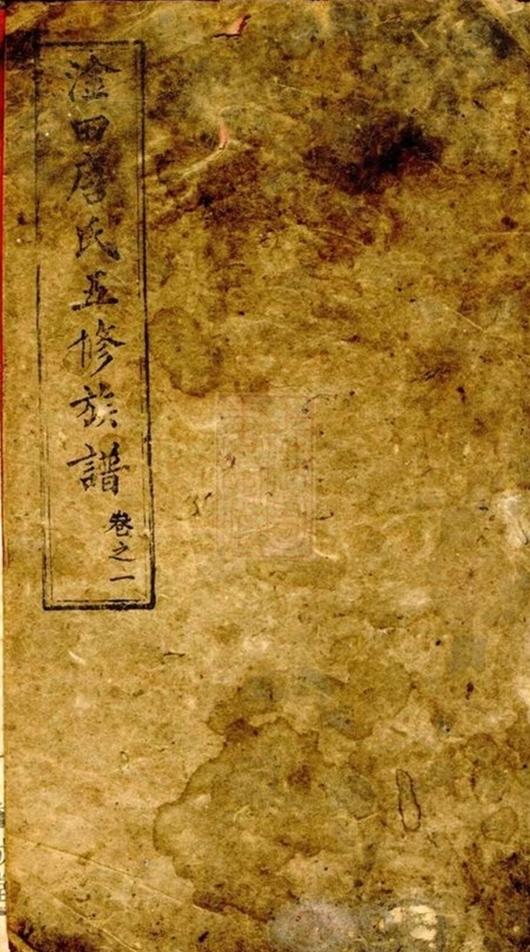 淦田唐氏五修族譜
卷之一